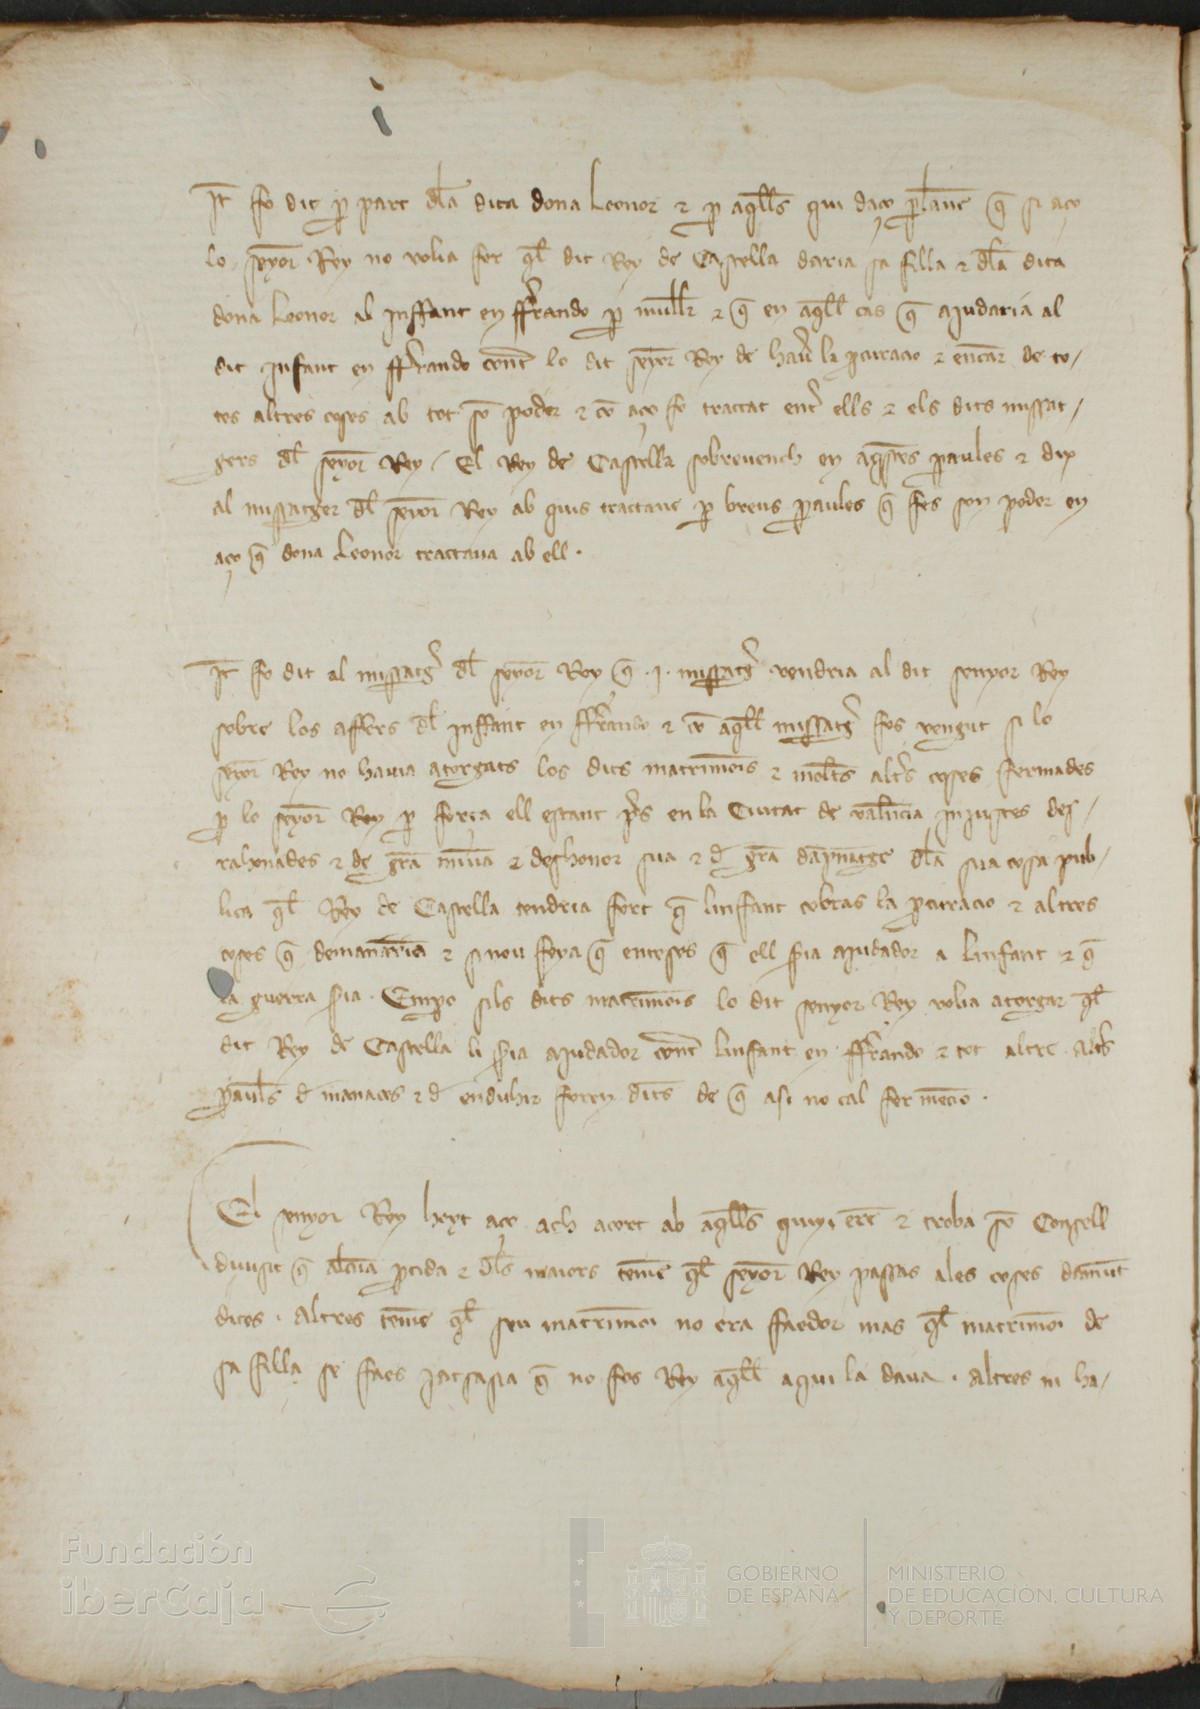 It fo dit p part dla dita dona Leonor ⁊ p aqlls qui daço plaue q si aço
lo seyor Rey no volia fer ql dit Rey de Castella daria sa filla ⁊ dla dita
dona Leonor al inffant en ffrando p mullr ⁊ q en aqll cas q aiudaria al
dit infant en ffrando contr lo dit seyor Rey de haur la pcuracio ⁊ encar de to-
tes altres coses ab tot so poder ⁊ co aço fo tractat entr ells ⁊ els dits missat-
gers dl seyor Rey / El Rey de Castella sobreuench en aqstes paules ⁊ dix
al missatger dl seyor Rey ab quis tractaue p breus paules q fes son poder en
aço q dona Leonor tractaua ab ell .
It fo dit al missatgr dl seyor Rey q .j. missatgr vendria al dit senyor Rey
sobre los affers dl inffant en ffrando ⁊ co aqll missatgr fos vengut si lo
seyor Rey no hauia atorgats los dits matrimonis ⁊ molts altrs coses fermades
p lo seyor Rey p força ell estant prs en la Ciutat de valencia injustes des-
rahonades ⁊ de gra minua ⁊ deshonor sua ⁊ d gra dapnatge dla sua cosa pub-
lica ql Rey de Castella tendria fort q linffant cobras la pcuracio ⁊ altres
coses q demanaria ⁊ si nou feya q enteses q ell sia aiudador a linfant ⁊ q
la guerra sia . Empo sils dits matrimonis lo dit senyor Rey volia atorgar ql
dit Rey de Castella li sia aiudador contr linfant en ffrando ⁊ tot altre . altrs
paules d manaces ⁊ d enduhir foren dits de q asi no cal fer mencio .
El senyor Rey hoyt aço ach acort ab aqlls quiy eren ⁊ troba so Consell
diuisit q alcuna ptida ⁊ dls maiors teme ql seyor Rey passas a les coses damunt
dites . Altres teme ql seu matrimoi no era faedor mas ql matrimoi de
sa filla se faes jatsasia q no fos Rey aqll a qui la daua . Altres ni ha-
Fundación
iberCaja
GOBIERNO
DE ESPAÑA
MINISTERIO
DE EDUCACIÓN, CULTURA
Y DEPORTE